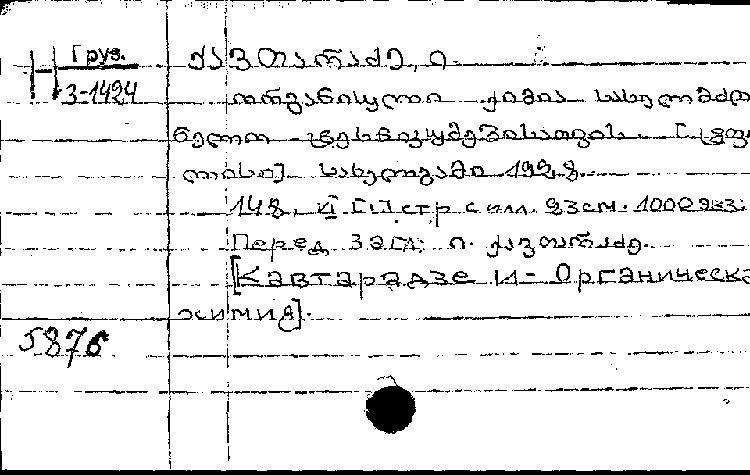 Груз.
3-1424
ქავთარაძე, ი.
ორგანისული ქიმია სახელმძღ
ნელო ტეხნიკუმებისათვის. [ტფი
ლისი] სახელგამი 1928.
148, II [I] стр с илл. 23см. 1000 экз.
Перед загл: ი. ქავთარაძე.
[Кавтарадзе И- Органическа
химия].
5876